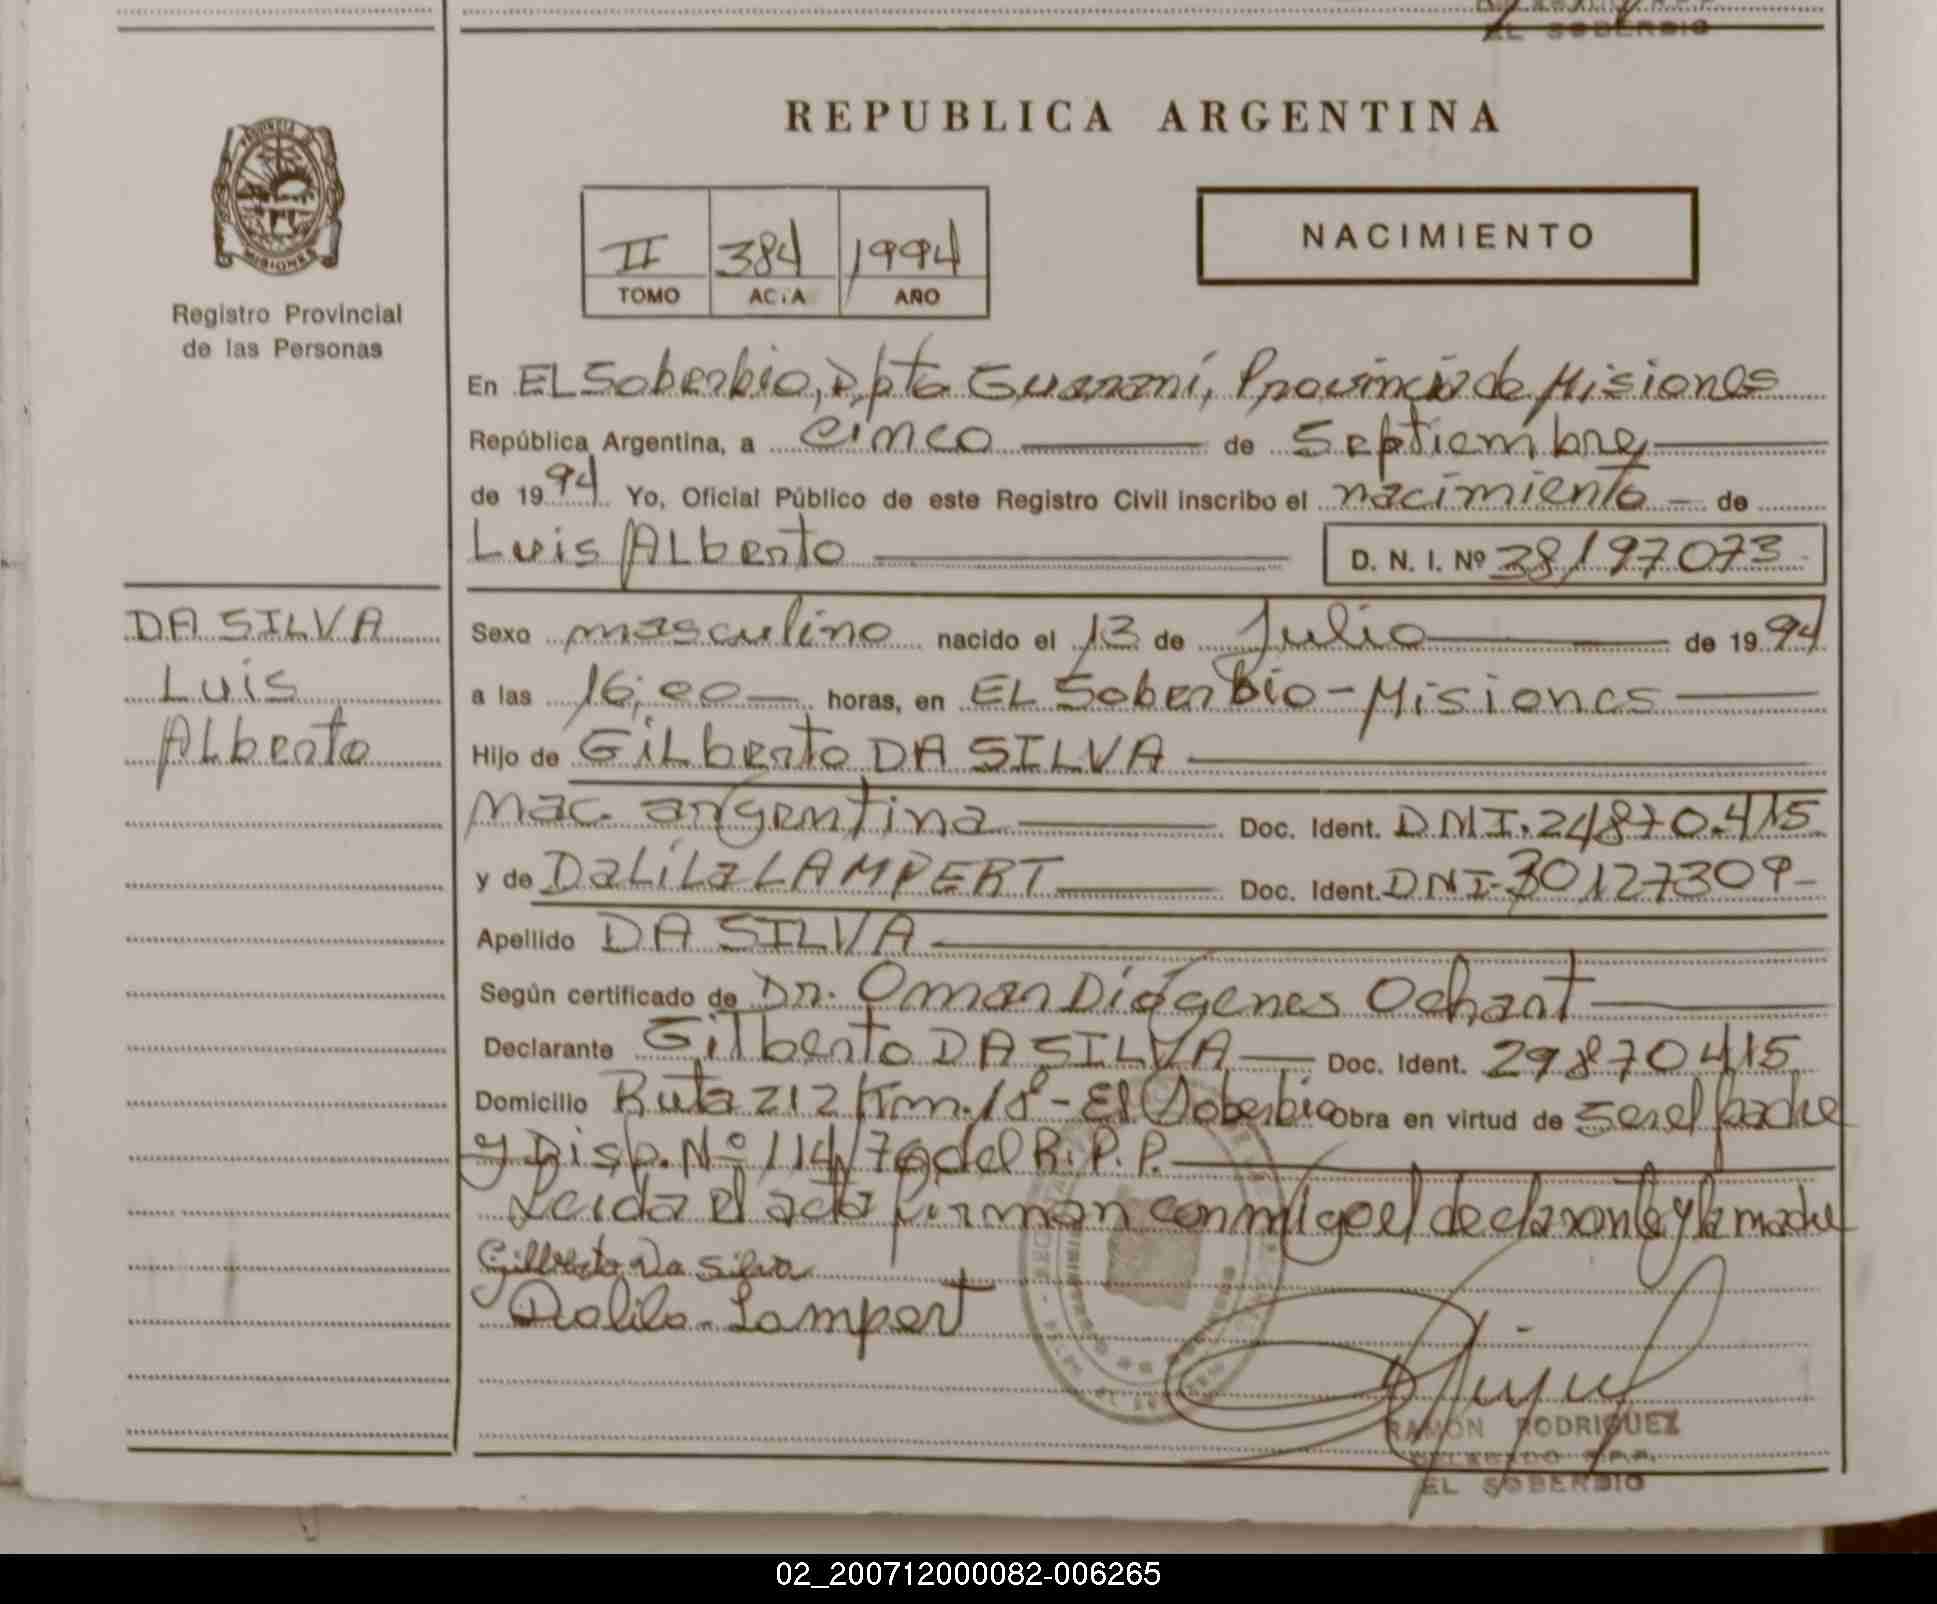 EL SOBERBIO
REPUBLICA ARGENTINA
II 384 1994
TOMO ACTA AÑO
NACIMIENTO
PROVINCIA
MISIONES
Registro Provincial
de las Personas
En EL Soberbio, Dpto Guaraní, Provincia de Misiones
República Argentina, a cinco de Septiembre
de 1994 Yo, Oficial Público de este Registro Civil inscribo el nacimiento - de
Luis Alberto D. N. I. Nº 38197073
DA SILVA
Luis
Alberto
Sexo masculino nacido el 13 de Julio de 1994
a las 16,00 horas, en EL Soberbio - Misiones
Hijo de Gilberto DA SILVA
nac. argentina Doc. Ident. DNI. 24870.415
y de DaLiLa LAMPERT Doc. Ident. DNI-30127309-
Apellido DA SILVA
Según certificado de Dr. Omar Diógenes Ochart
Declarante Gilberto DA SILVA Doc. Ident. 29870415
Domicilio Ruta 212 Km. 18 - El Soberbio Obra en virtud de ser el padre
y Disp. Nº 114/76 del R.P.P.
Leida el acta firman conmigo el declarante y la madre
Gilberto Da Silva
Dalila Lampert
RAMON RODRIGUEZ
DELEGADO R.P.P.
EL SOBERBIO
02_200712000082-006265